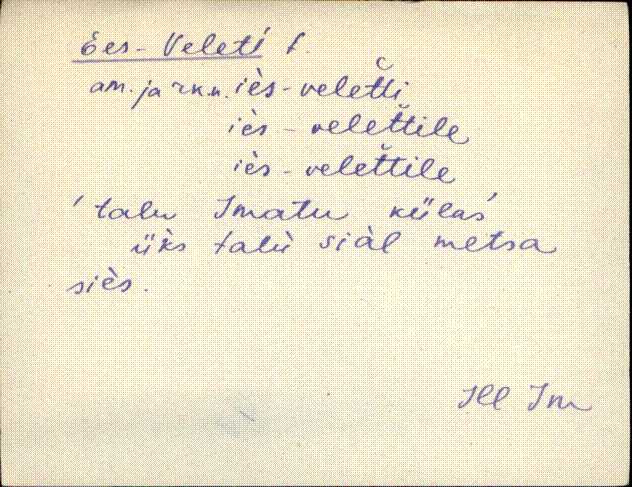 Ees-Veleti t.
am. ja rk.n. iès-velet̆t̆i
iès-velet̆t̆ile
iès-velet̆t̆ile
'talu Imatu külas'
üks talù siàl metsa
siès.
Ill Im